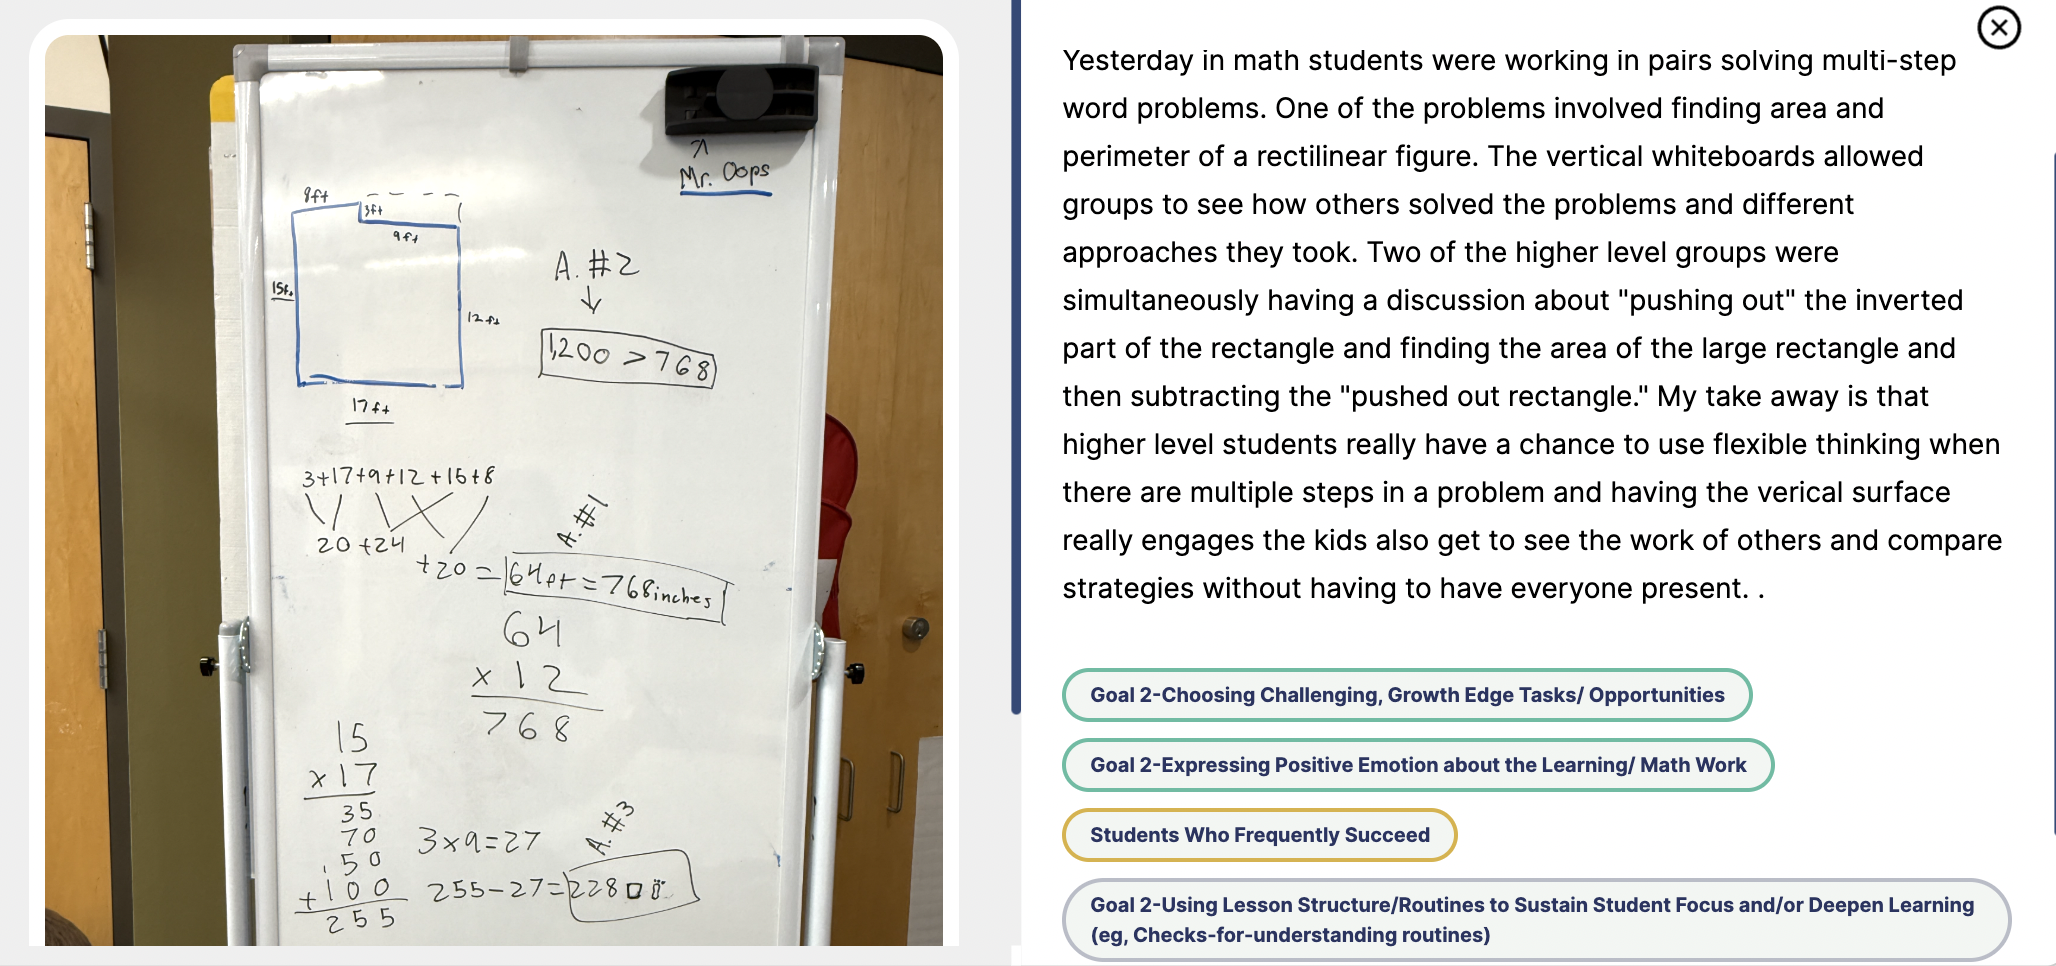 Mr. Oops
8ft
3ft
9ft
15ft.
12ft
17ft
A. #2
1,200 > 768
3+17+9+12+15+8
20 +24
+20 = 64ft = 768inches
A. #1
64
x 12
768
15
x 17
35
70
50
+100
255
3x9=27
A. #3
255-27=228
Yesterday in math students were working in pairs solving multi-step
word problems. One of the problems involved finding area and
perimeter of a rectilinear figure. The vertical whiteboards allowed
groups to see how others solved the problems and different
approaches they took. Two of the higher level groups were
simultaneously having a discussion about "pushing out" the inverted
part of the rectangle and finding the area of the large rectangle and
then subtracting the "pushed out rectangle." My take away is that
higher level students really have a chance to use flexible thinking when
there are multiple steps in a problem and having the verical surface
really engages the kids also get to see the work of others and compare
strategies without having to have everyone present. .
Goal 2-Choosing Challenging, Growth Edge Tasks/ Opportunities
Goal 2-Expressing Positive Emotion about the Learning/ Math Work
Students Who Frequently Succeed
Goal 2-Using Lesson Structure/Routines to Sustain Student Focus and/or Deepen Learning
(eg, Checks-for-understanding routines)